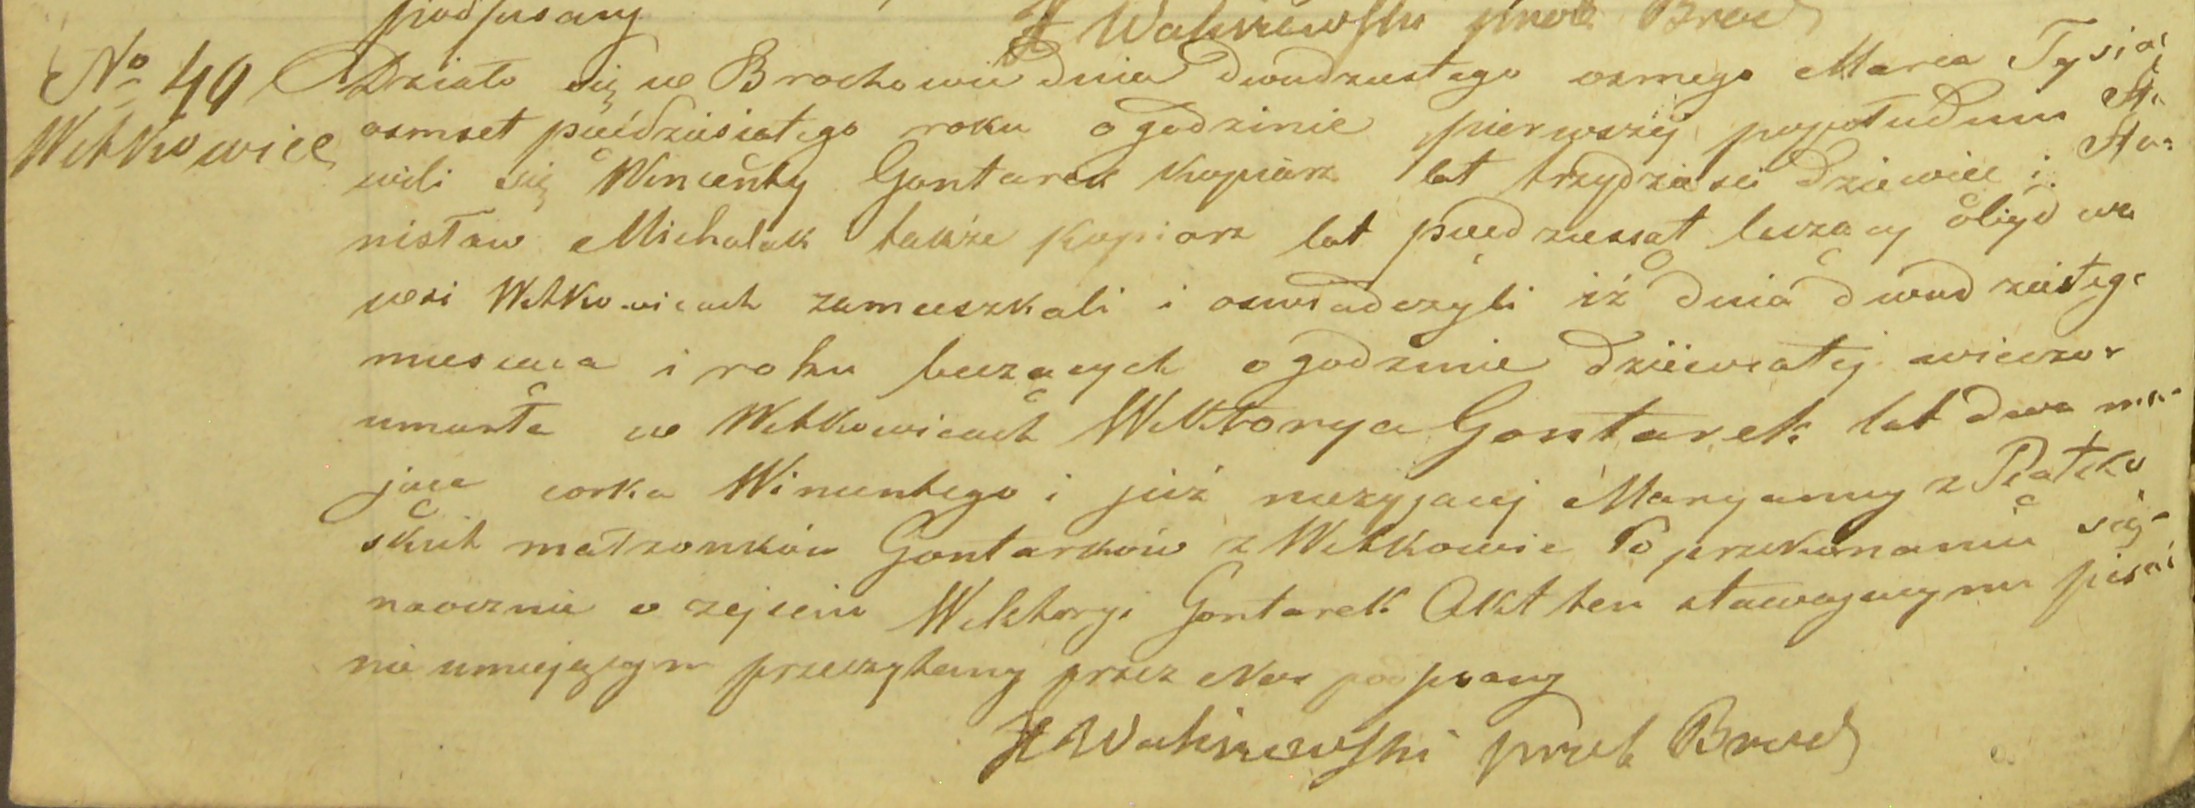 podpisany H Waliszewski prob Broch
No 49 Działo się we Brochowie dnia dwudziestego osmego Marca Tysiąc
Witkowice osmset piećdziesiątego roku o godzinie pierwszej popołudniu Sta
wili się Wincenty Gontarek kopiarz lat trzydzieści dziewieć i Sta-
nisław Michalak także kopiarz lat piećdziesiąt liczący obijd we
wsi Witkowicach zamieszkali i oswiadczyli iż dnia dwudziestego
miesiąca i roku bieżących o godzinie dziewiątej wieczor
umarła w Witkowicach Wiktorya Gontarek lat dwa ma-
jąca corka Wincentego i już nieżyjącej Maryanny z Piątko
skich małżonków Gontarków z Witkowic Po przekonaniu się
naocznie o zejściu Wiktoryi Gontarek Akt ten stawającym pisać
nie umiejącym przeczytany przez Nas podpisany
H Waliszewski prob Broch